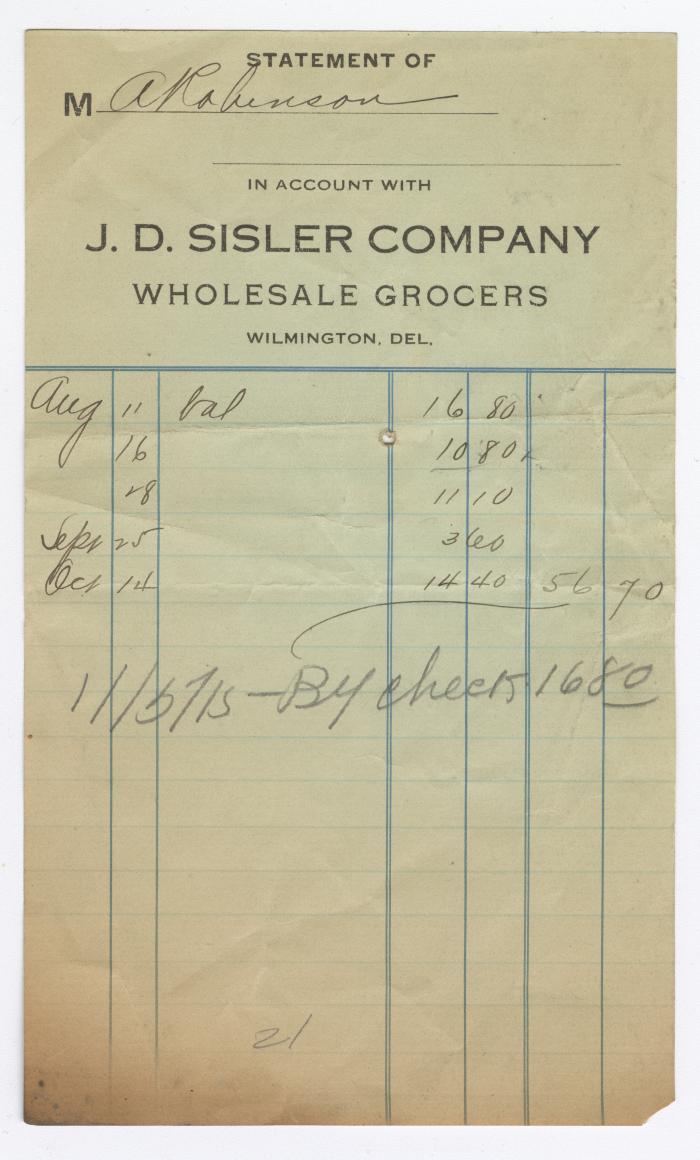 STATEMENT OF
M A Robinson
IN ACCOUNT WITH
J. D. SISLER COMPANY
WHOLESALE GROCERS
WILMINGTON, DEL.
Aug 11 bal 16 80
16 10 80
28 11 10
Sept 25 3 60
Oct 14 14 40 56 70
11/5/15 - By check 16 80
21